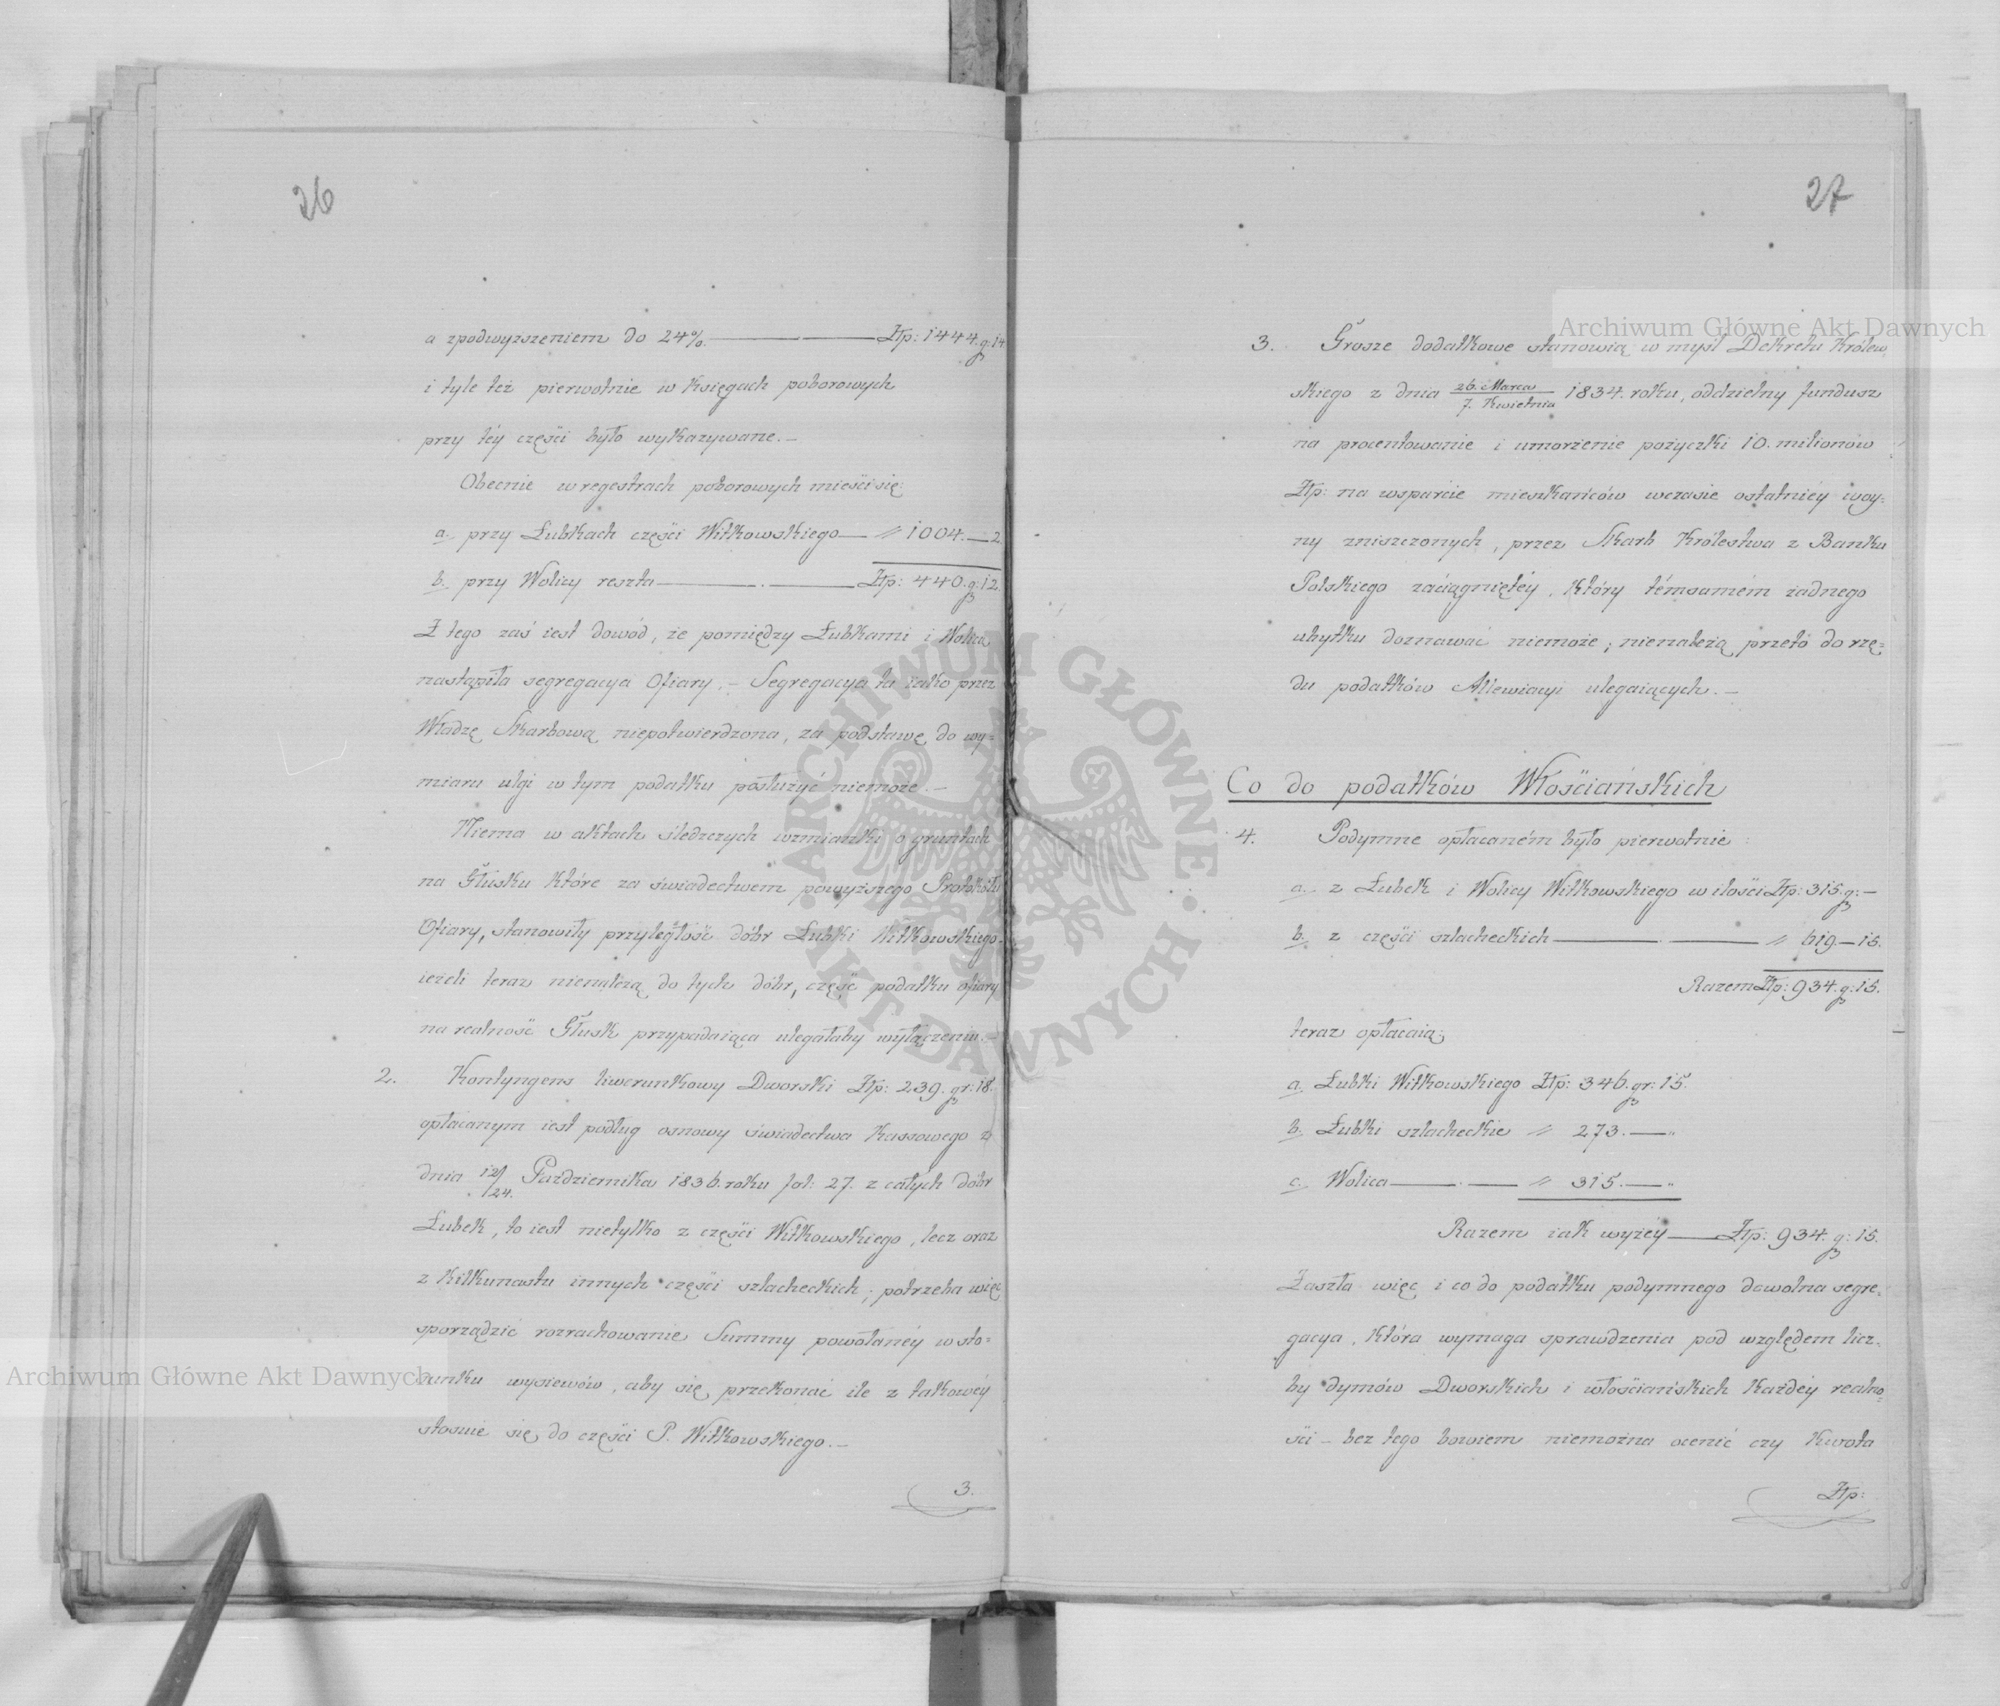 26
a zpodwyższeniem do 24% Złp: 1444. g: 14
i tyle też pierwotnie w Księgach poborowych
przy téy części było wykazywane.–
Obecnie w regestrach poborowych mieści się:
a. przy Łubkach części Witkowskiego —〃 1004.—2
b. przy Wolicy reszta Złp: 440. g: 12.
Z tego zaś iest dowód, że pomiędzy Łubkami i Wolicą
nastąpiła segregacya Ofiary.– Segregacya ta iako przez
Władzę Skarbową niepotwierdzona, za podstawę do wy=
miaru ulgi w tym podatku posłużyć niemoże.–
Niema w aktach śledczych wzmianki o gruntach
na Głusku które za świadectwem powyższego Protokółu
Ofiary, stanowiły przyległość dóbr Łubki Witkowskiego.
ieżeli teraz nienależą do tych dóbr, część podatku ofiary
na realność Głusk przypadaiąca ulegałaby wyłączeniu.–
2. Kontyngens liwerunkowy Dworski Złp: 239. gr: 18.
opłacanym iest podług osnowy świadectwa Kassowego z
dnia 12/24. Października 1836. roku fol: 27. z całych dóbr
Łubek, to iest nietylko z części Witkowskiego, lecz oraz
z kilkunastu innych części szlacheckich; potrzeba więc
sporządzić rozrachowanie Summy powołanéy w sto=
sunku wysiewów, aby się przekonać ile z takowéy
stosuie się do części P. Witkowskiego.–
3.
27
3. Grosze dodatkowe stanowią w myśl Dekretu Królew
skiego z dnia 26. Marca/7. Kwietnia 1834. roku, oddzielny fundusz
na procentowanie i umorzenie pożyczki 10. milionów
Złp: na wsparcie mieszkańców wczasie ostatniéy woy=
ny zniszczonych, przez Skarb Królestwa z Banku
Polskiego zaciągniętéy, który témsamém żadnego
ubytku doznawać niemoże; nienależą przeto do rzę=
du podatków Allewiacyi ulegaiących.–
Co do podatków Włościańskich
4. Podymne opłacaném było pierwotnie:
a. z Łubek i Wolicy Witkowskiego w ilości Złp: 315. g:–
b. z części szlacheckich 〃 619.—15.
Razem Złp: 934. g: 15.
teraz opłacaią;
a. Łubki Witkowskiego Złp: 346. gr: 15.
b. Łubki szlacheckie 〃 273.—„
c. Wolica 〃 315.—„
Razem iak wyżey Złp: 934. g: 15.
Zaszła więc i co do podatku podymnego dowolna segre=
gacya, która wymaga sprawdzenia pod względem licz=
by dymów Dworskich i włościańskich każdéy realno=
ści – bez tego bowiem niemożna ocenić czy kwota
Złp:
Archiwum Główne Akt Dawnych
Archiwum Główne Akt Dawnych
ARCHIWUM GŁÓWNE · AKT DAWNYCH ·